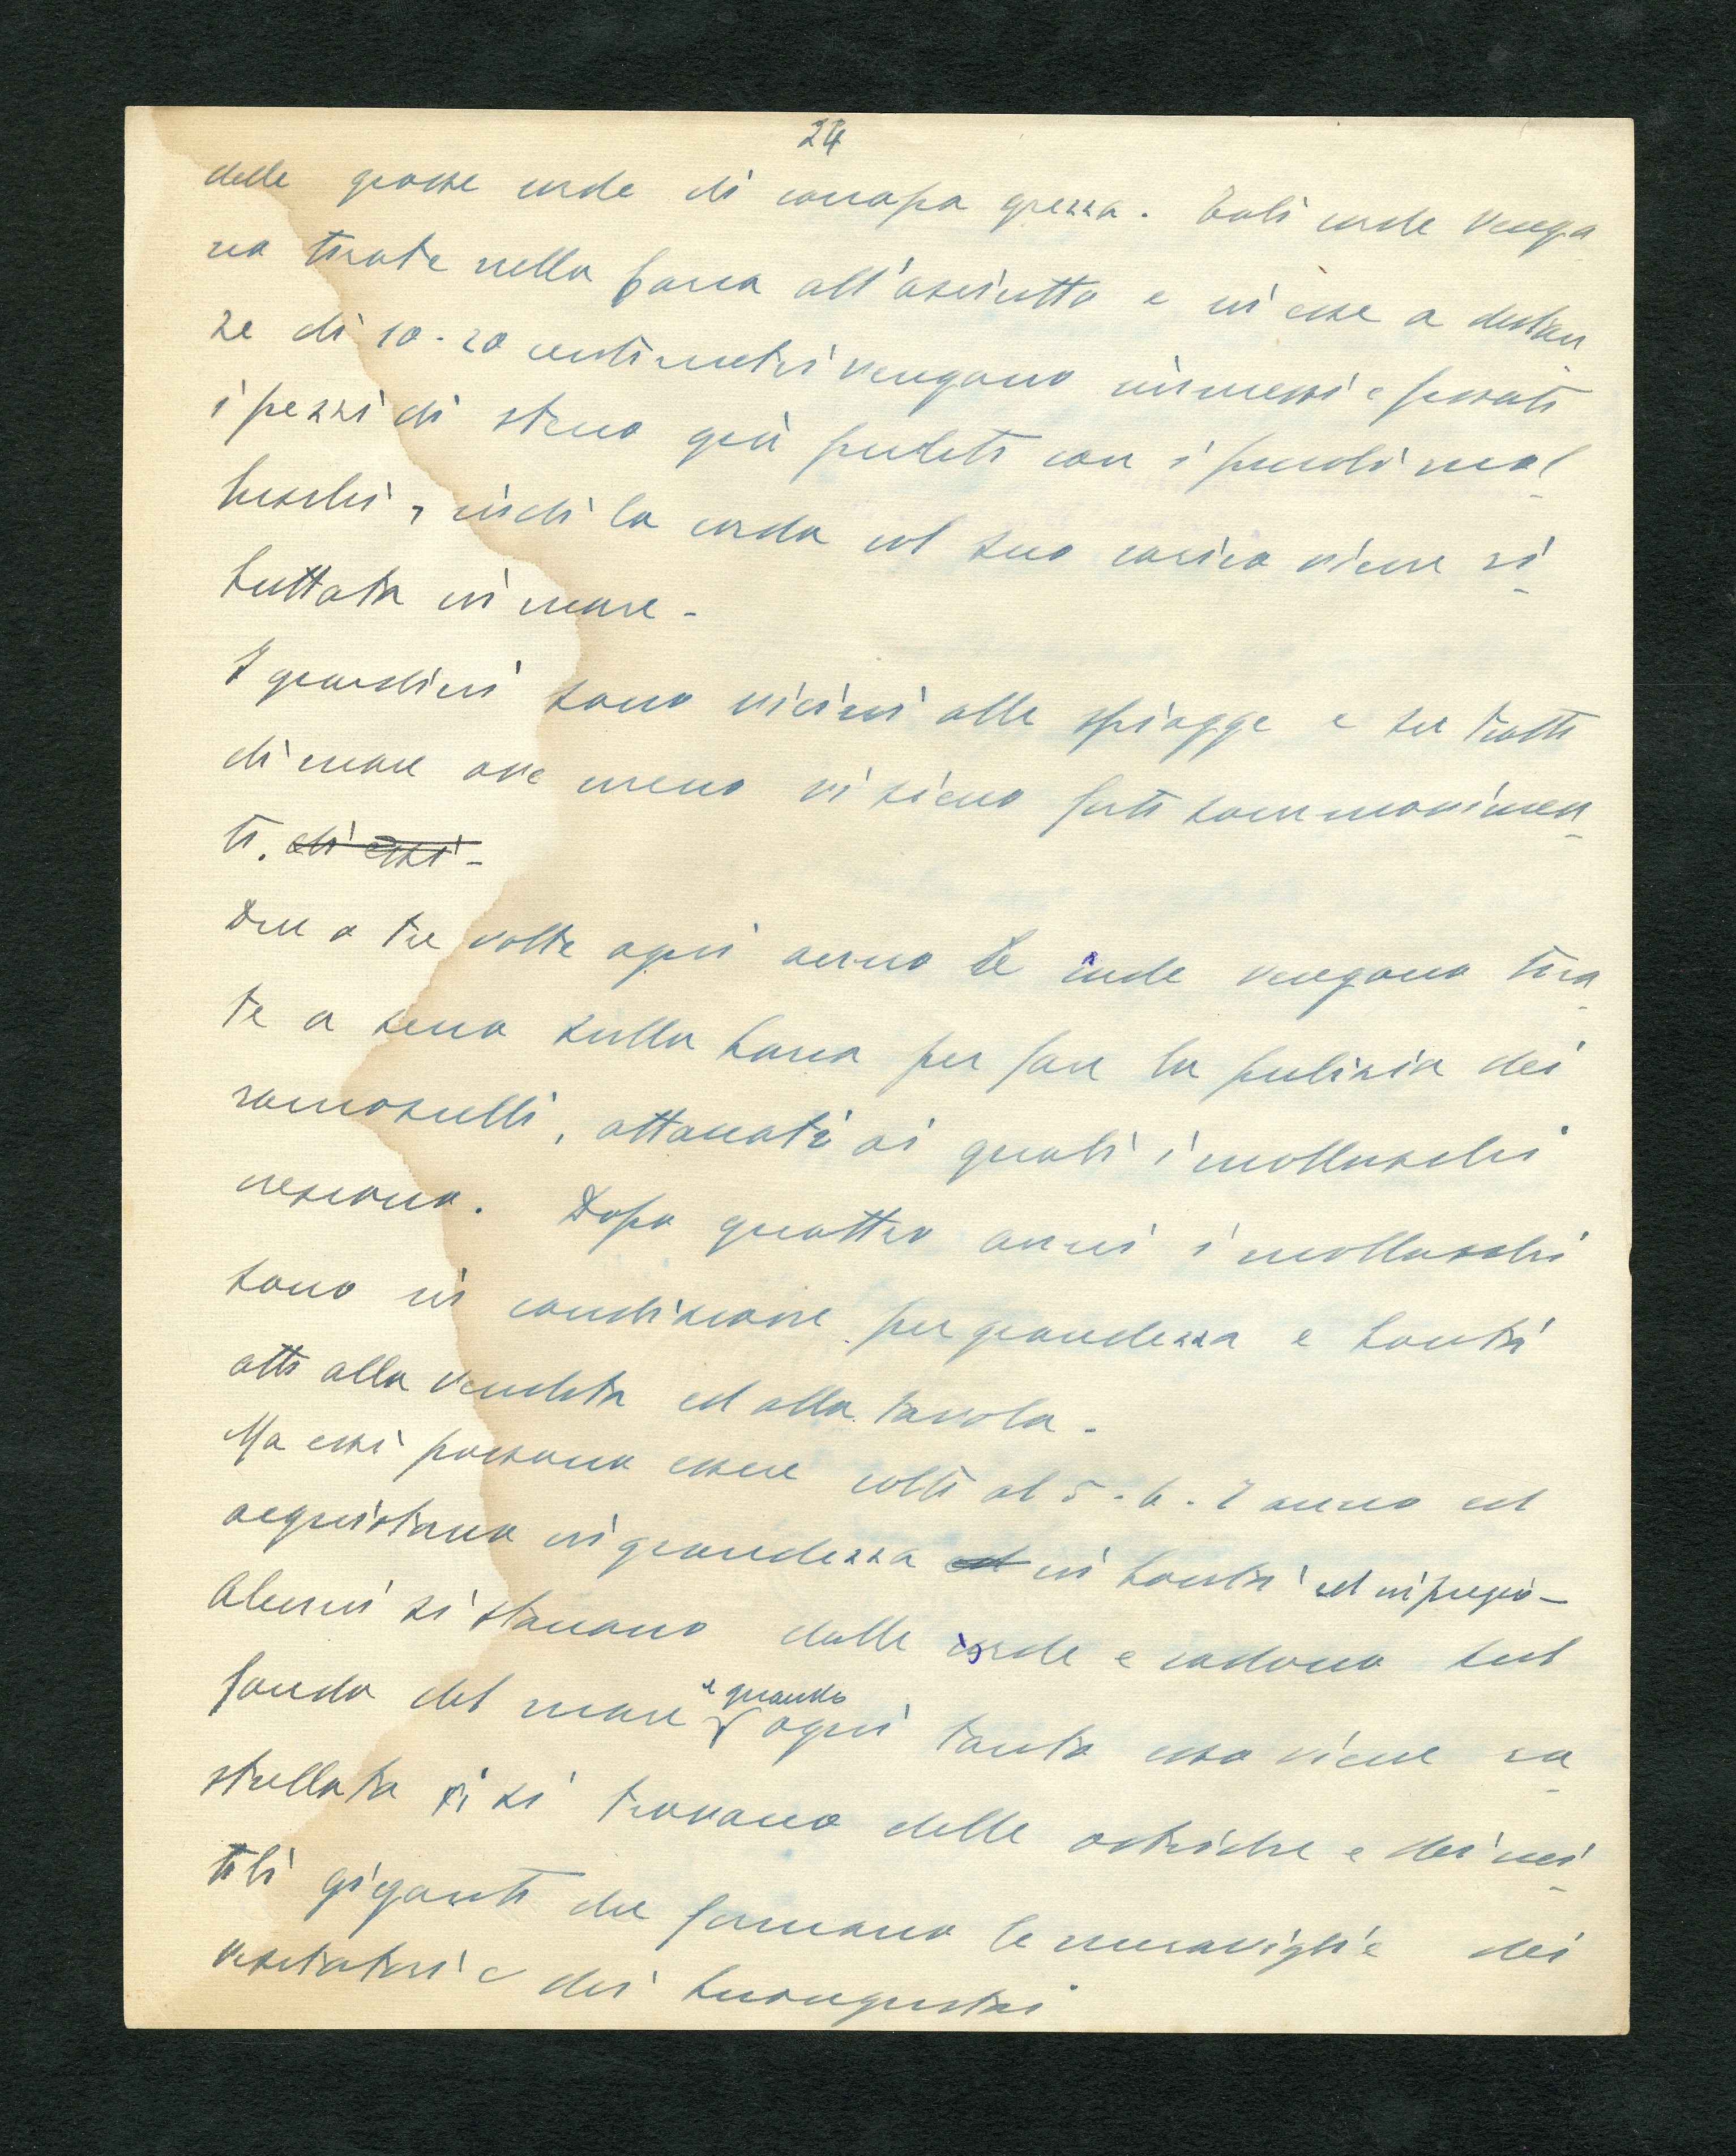 24
delle grosse corde di canapa grezza. Tali corde venga
no tirate nella barca all'asciutto e in esse a distan
ze di 10-20 centimetri vengono immessi e fissati
i pezzi di già con i piccoli mol
luschi, indi la corda col suo carico viene ri
buttata in mare -
I giardini sono vicini alle spiagge e su tratti
di mare ove meno vi sieno forti sommovimen
ti. di essi -
Due o tre volte ogni anno le corde vengono tira
te a secco sulla barca per fare la pulizia dei
ramoscelli, attaccati ai quali i molluschi
crescono. Dopo quattro anni i molluschi
sono in condizione per grandezza e bontà
atti alla vendita ed alla tavola -
Ma essi possono essere colti al 5-6-7 anno ed
acquistano in grandezza ed in bontà ed in pregio -
Alcuni si staccano dalle corde e cadono sul
fondo del mare e quando ogni tanto esso viene ra
strellato vi si trovano delle ostriche e dei mi
tili giganti che formano le meraviglie dei
visitatori e dei buongustai